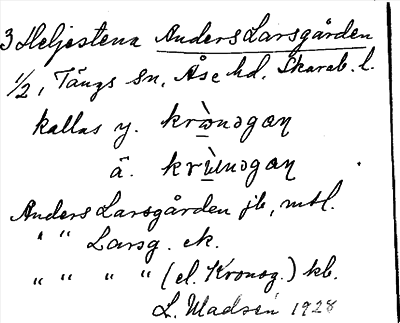 3 Heljestena Anders Larsgården
1/2, Tängs sn, Åse hd. Skarab. l.
kallas y. krɷ̀nɔgæn
ä. krɯ̀nɔgæn
Anders Larsgården jb, mtl.
" " Larsg. ek.
" " " " (el. Kronog.) kb.
L. Madsén 1928